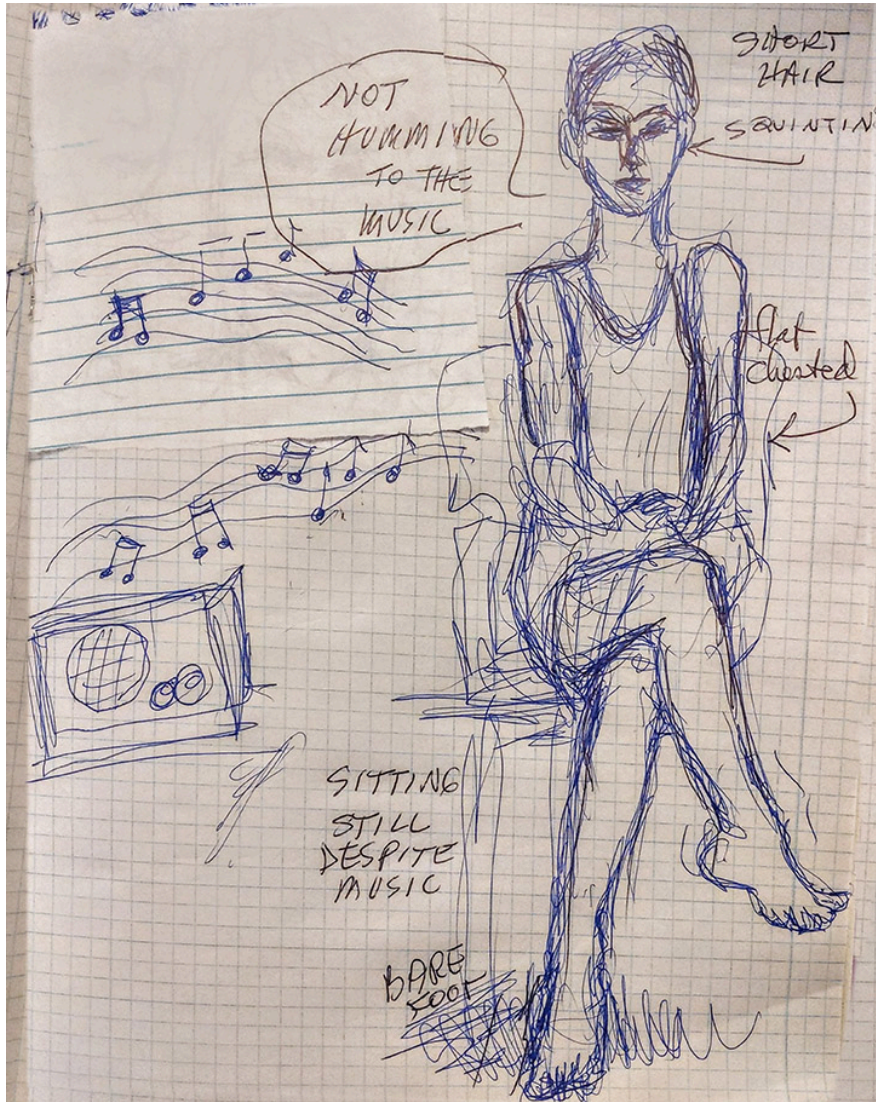 NOT
HUMMING
TO THE
MUSIC
SHORT
HAIR
SQUINTIN
flat
chested
SITTING
STILL
DESPITE
MUSIC
BARE
FOOT